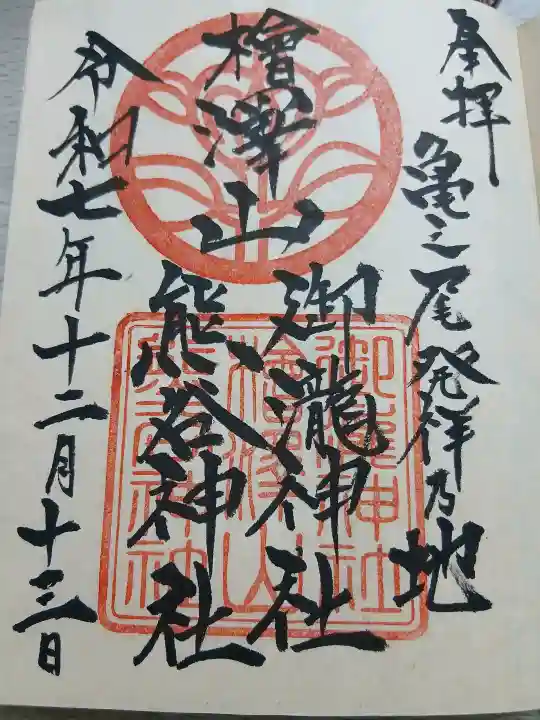 奉拝
亀之尾発祥乃地
檜澤山
御瀧神社
熊谷神社
令和七年十二月十三日
御瀧神社
檜澤山
熊谷神社